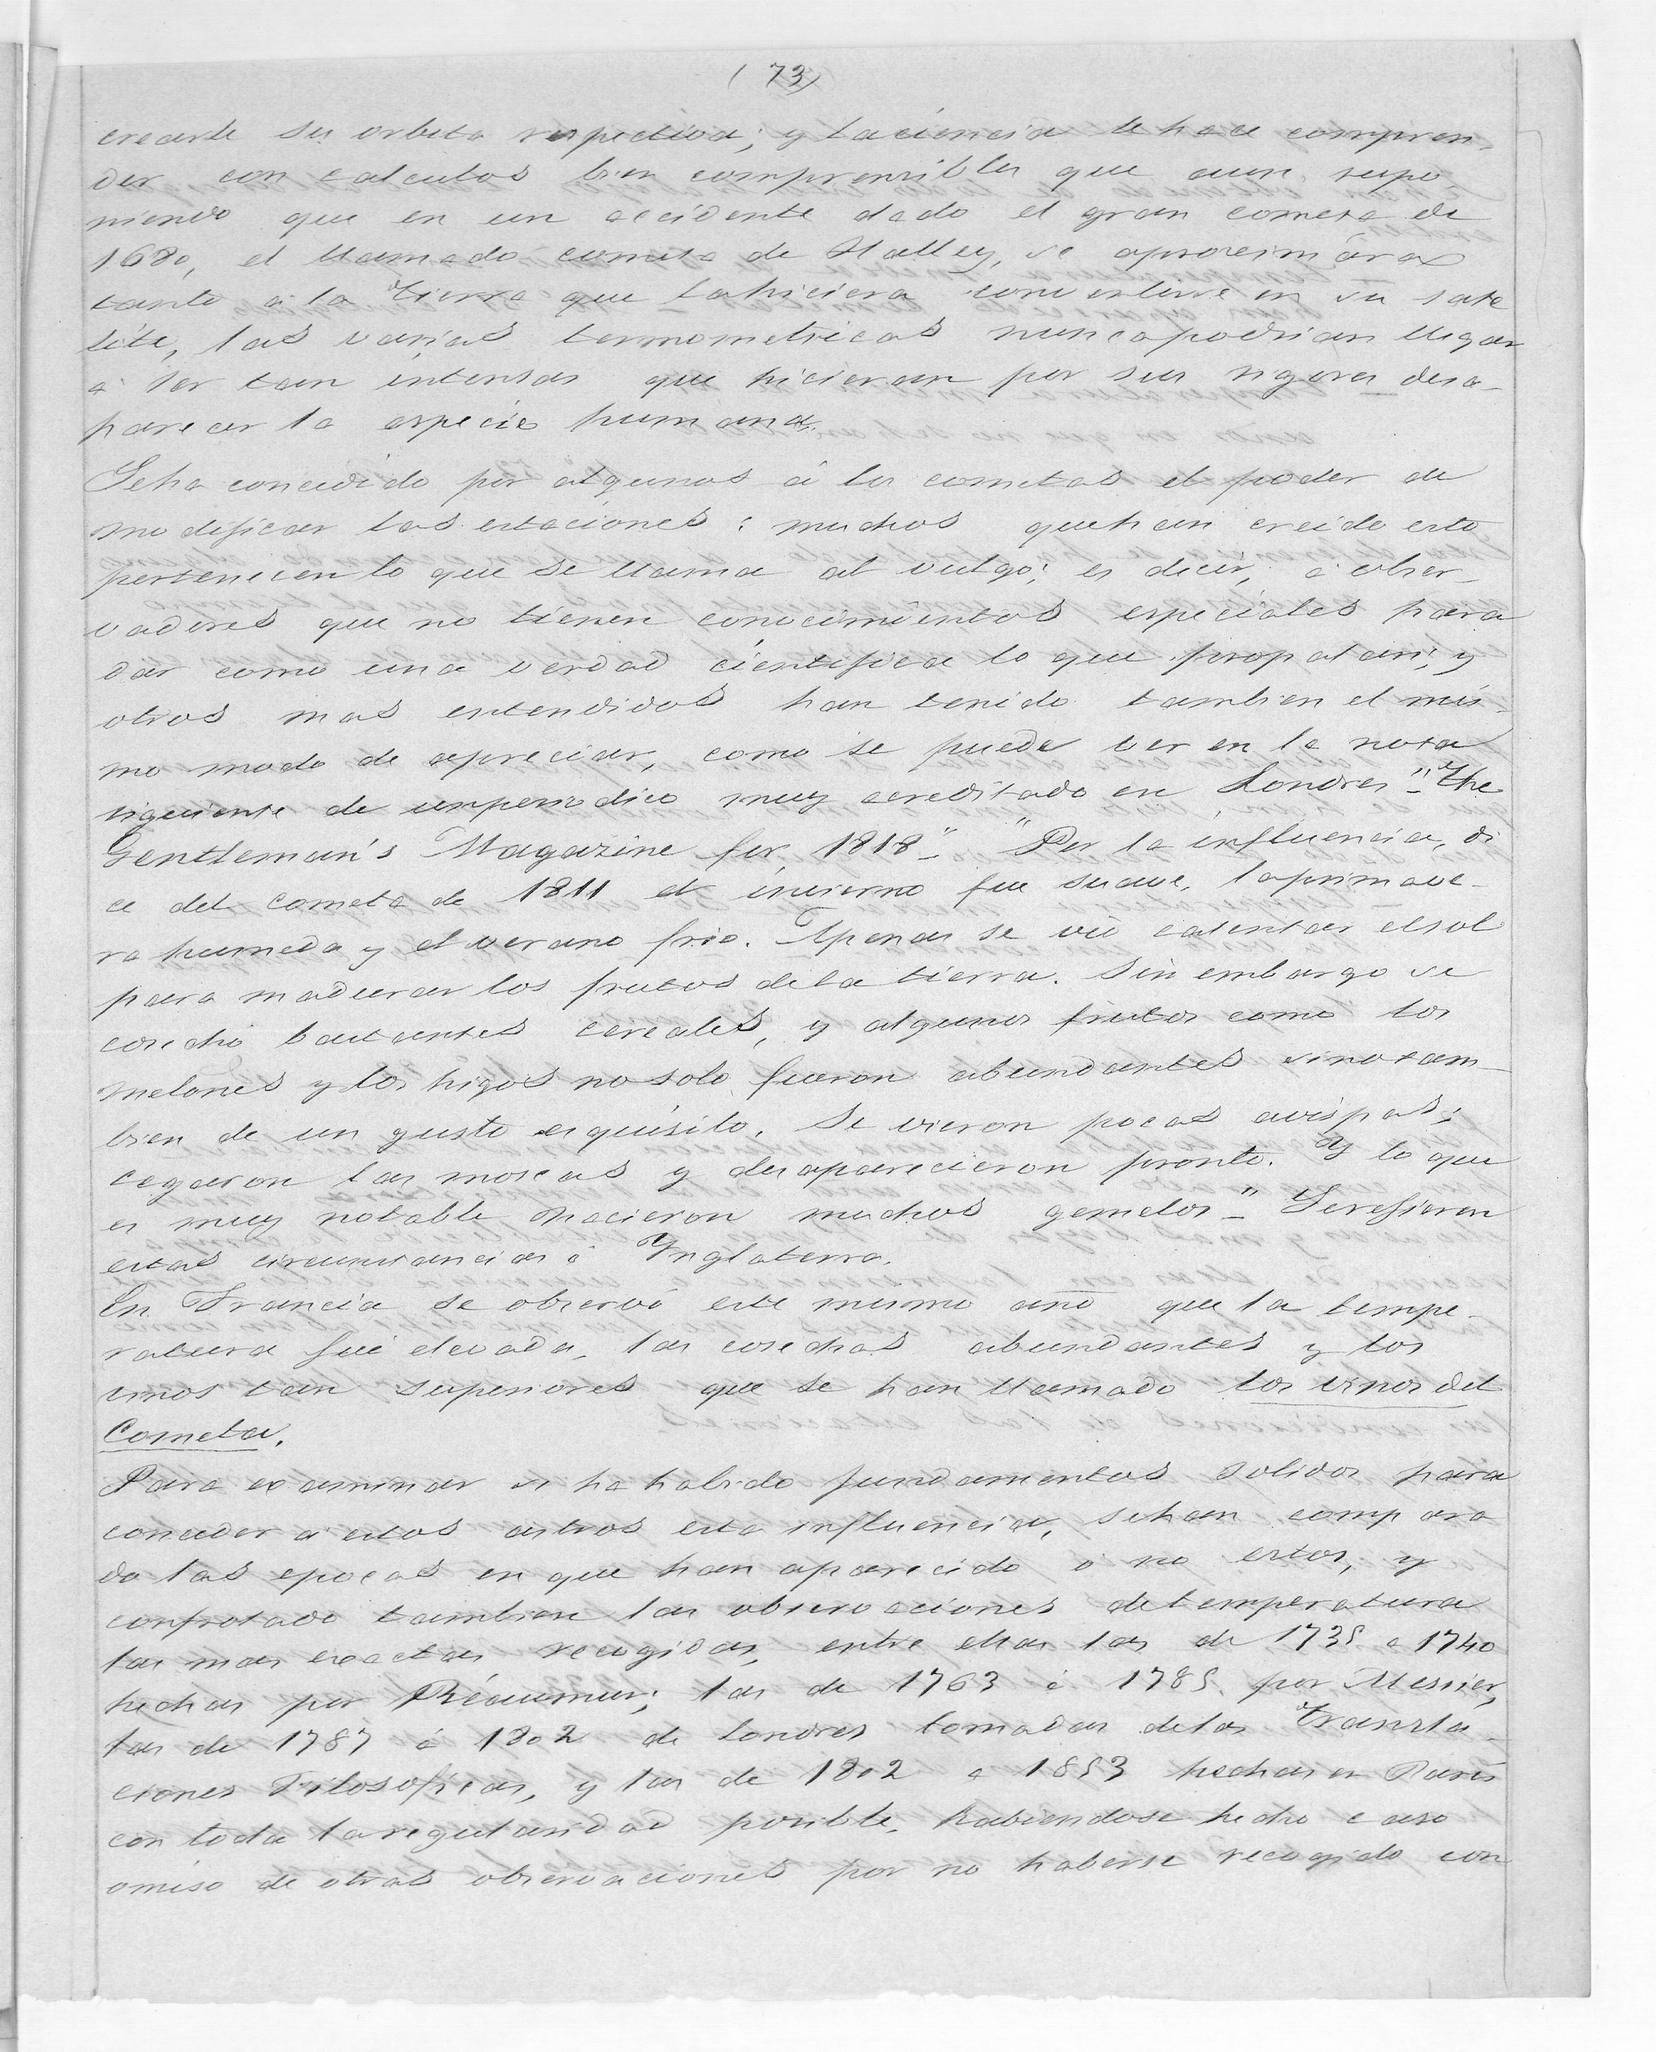 (73)
crearle su orbita respectiva; y la ciencia le hace compren-
der con calculos bien comprensibles que aun supo
niendo que en un accidente dado el gran cometa de
1680, el llamado cometa de Halley, se aproximára
tanto a la Tierra que la hiciera convertirse en su sate
lite, las varias termometricas nunca podrian llegar
a ser tan intensas que hicieran por sus rigores desa-
parecer la especie humana.
Se ha concedido por algunos á los cometas el poder de
modificar las estaciones: muchos que han creido esto
pertenecen lo que se llama al vulgo; es decir, a obser-
vadores que no tienen conocimientos especiales para
dar como una verdad cientifica lo que propalan; y
otros mas entendidos han tenido tambien el mis-
mo modo de apreciar, como se puede ver en la nota
siguiente de un periodico muy acreditado en Londres "The
Gentleman's Magazine for 1818"- "Por la influencia, di
ce del cometa de 1811 el invierno fue suave, la primave-
ra humeda y el verano frio. Apenas se vió calentar el sol
para madurar los frutos de la tierra. Sin embargo se
cosechó bastantes cereales, y algunos frutos como los
melones y los higos no solo fueron abundantes sino tam-
bien de un gusto esquisito. Se vieron pocas avispas;
cegaron las moscas y desaparecieron pronto. Y lo que
es muy notable nacieron muchos gemelos"- Se refieren
estas circunstancias á Ynglaterra.
En Francia se observó este mismo año que la tempe-
ratura fué elevada, las cosechas abundantes y los
vinos tan superiores que se han llamado los vinos del
Cometa.
Para examinar si ha habido fundamentos solidos para
conceder a estos astros esta influencia, se han compara
do las epocas en que han aparecido ó no estos, y
confrotado tambien las observaciones de temperatura
las mas exactas recogidas, entre ellas las de 1735 a 1740
hechas por Réaumur; las de 1763 á 1785 por Messier,
las de 1787 á 1802 de Londres tomadas de las Transla-
ciones Filosoficas, y las de 1802 a 1853 hechas en Paris
con toda la regularidad posible, habiendose hecho caso
omiso de otras observaciones por no haberse recogido con